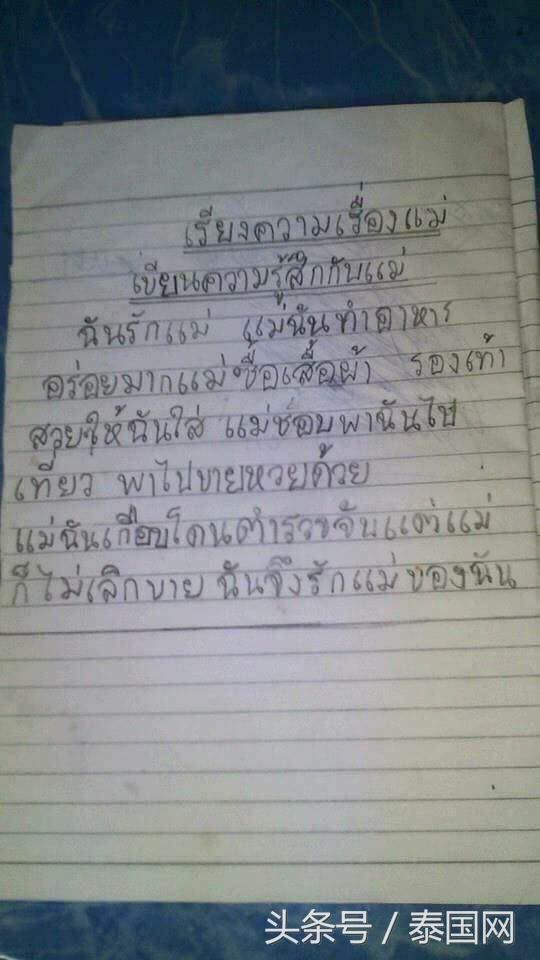 เรียงความเรื่องแม่
เขียนความรู้สึกกับแม่
ฉันรักแม่ แม่ฉันทำอาหาร
อร่อยมากแม่ซื้อเสื้อผ้า รองเท้า
สวยให้ฉันใส่ แม่ชอบพาฉันไป
เที่ยว พาไปขายหวยด้วย
แม่ฉันเกือบโดนตำรวจจับแต่แม่
ก็ไม่เลิกขาย ฉันจึงรักแม่ของฉัน
头条号 / 泰国网